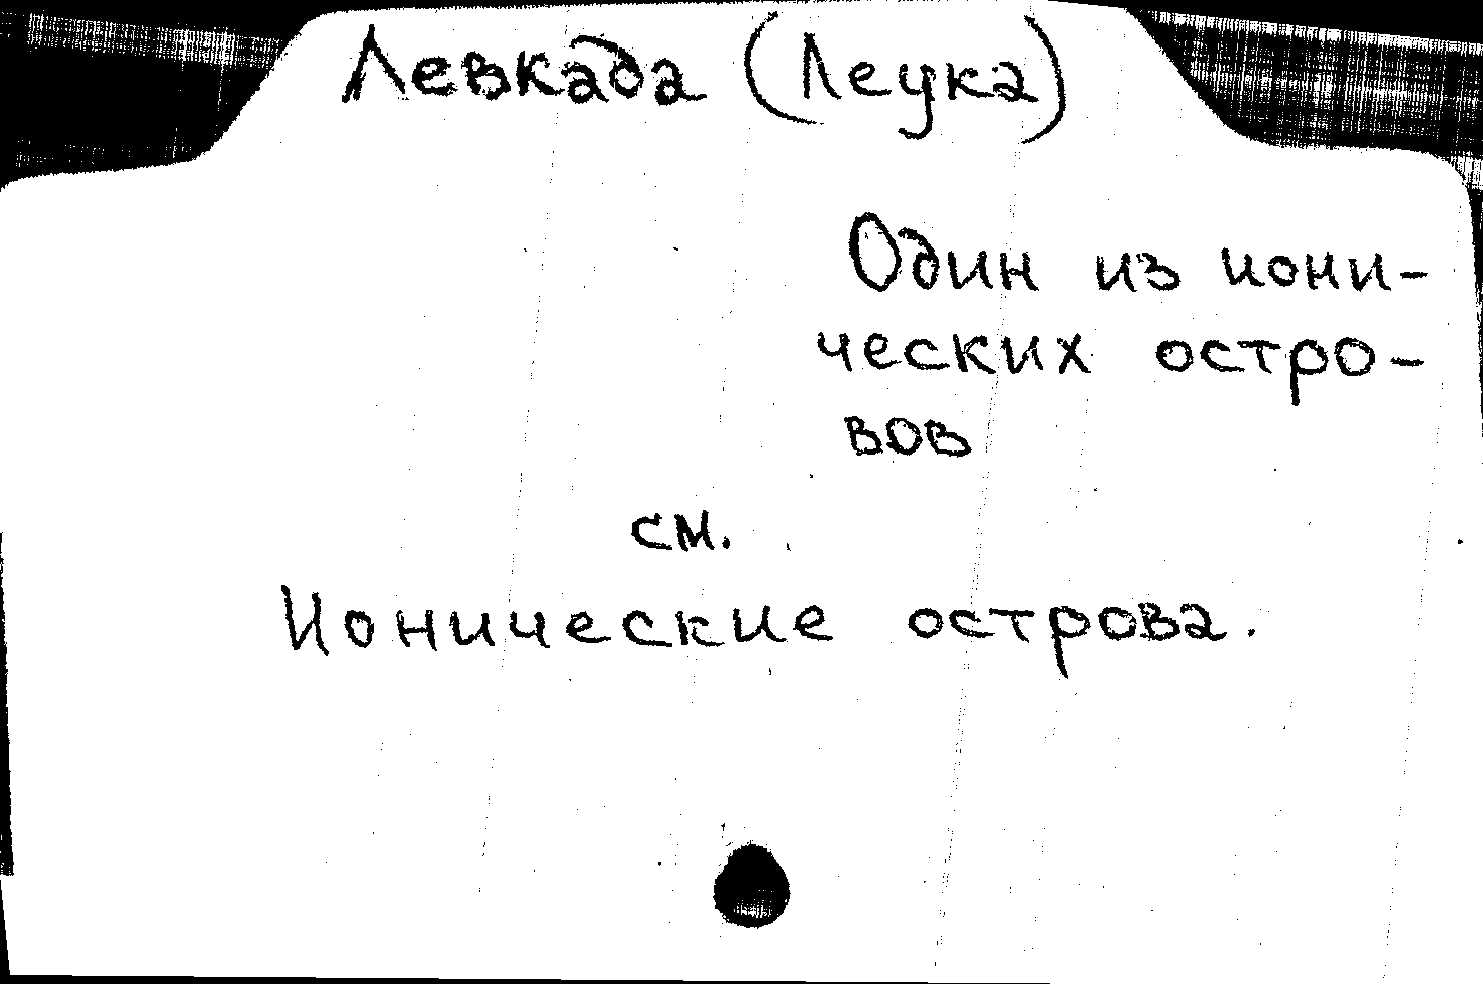 Левкада (Леука)
Один из иони-
ческих остро-
вов
см.
Ионические острова.